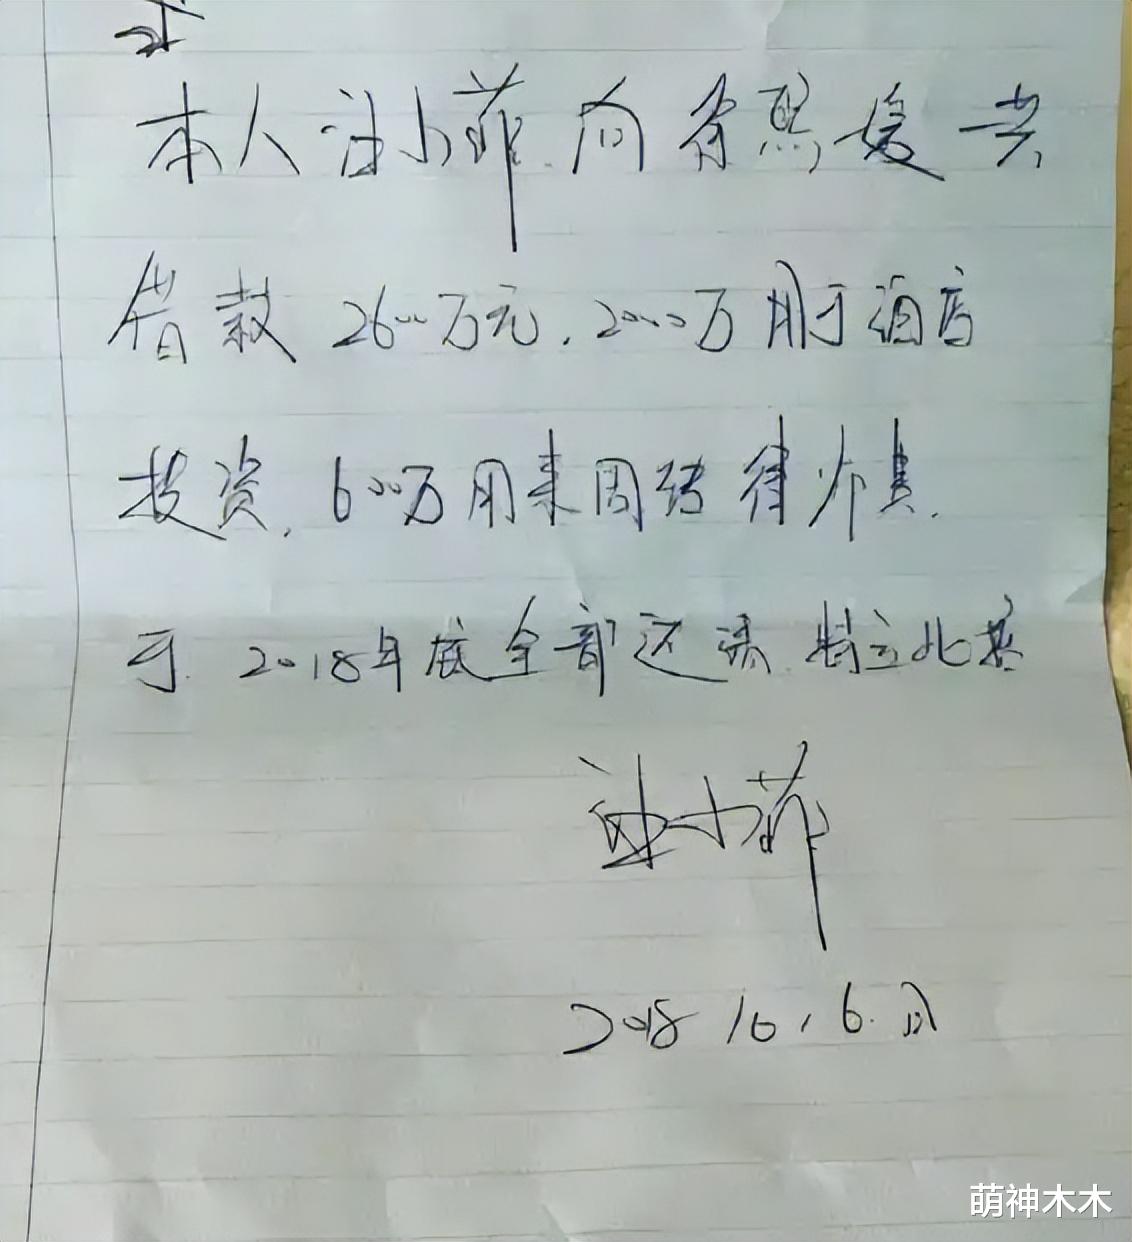 本人汪小菲向徐熙媛共
借款2600万元,2000万用于酒店
投资,600万用来周转律师费.
于2018年底全部还清.特立此基
汪小菲
2018 10,6.日
萌神木木